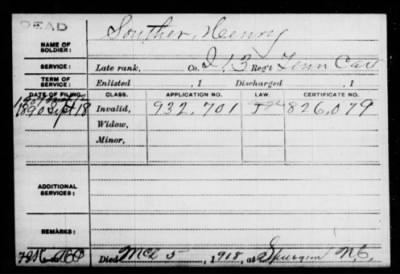 DEAD
NAME OF SOLDIER: Souther, Henry
SERVICE: Late rank, Co. I, 13 Reg't Tenn Cav
TERM OF SERVICE: Enlisted , 1 Discharged , 1
DATE OF FILING. CLASS. APPLICATION NO. LAW. CERTIFICATE NO.
1890 Sept 18 Invalid, 932,701 826,079
Widow,
Minor,
ADDITIONAL SERVICES:
REMARKS:
Died Mch 5, 1918, at Spurgeon N.C.